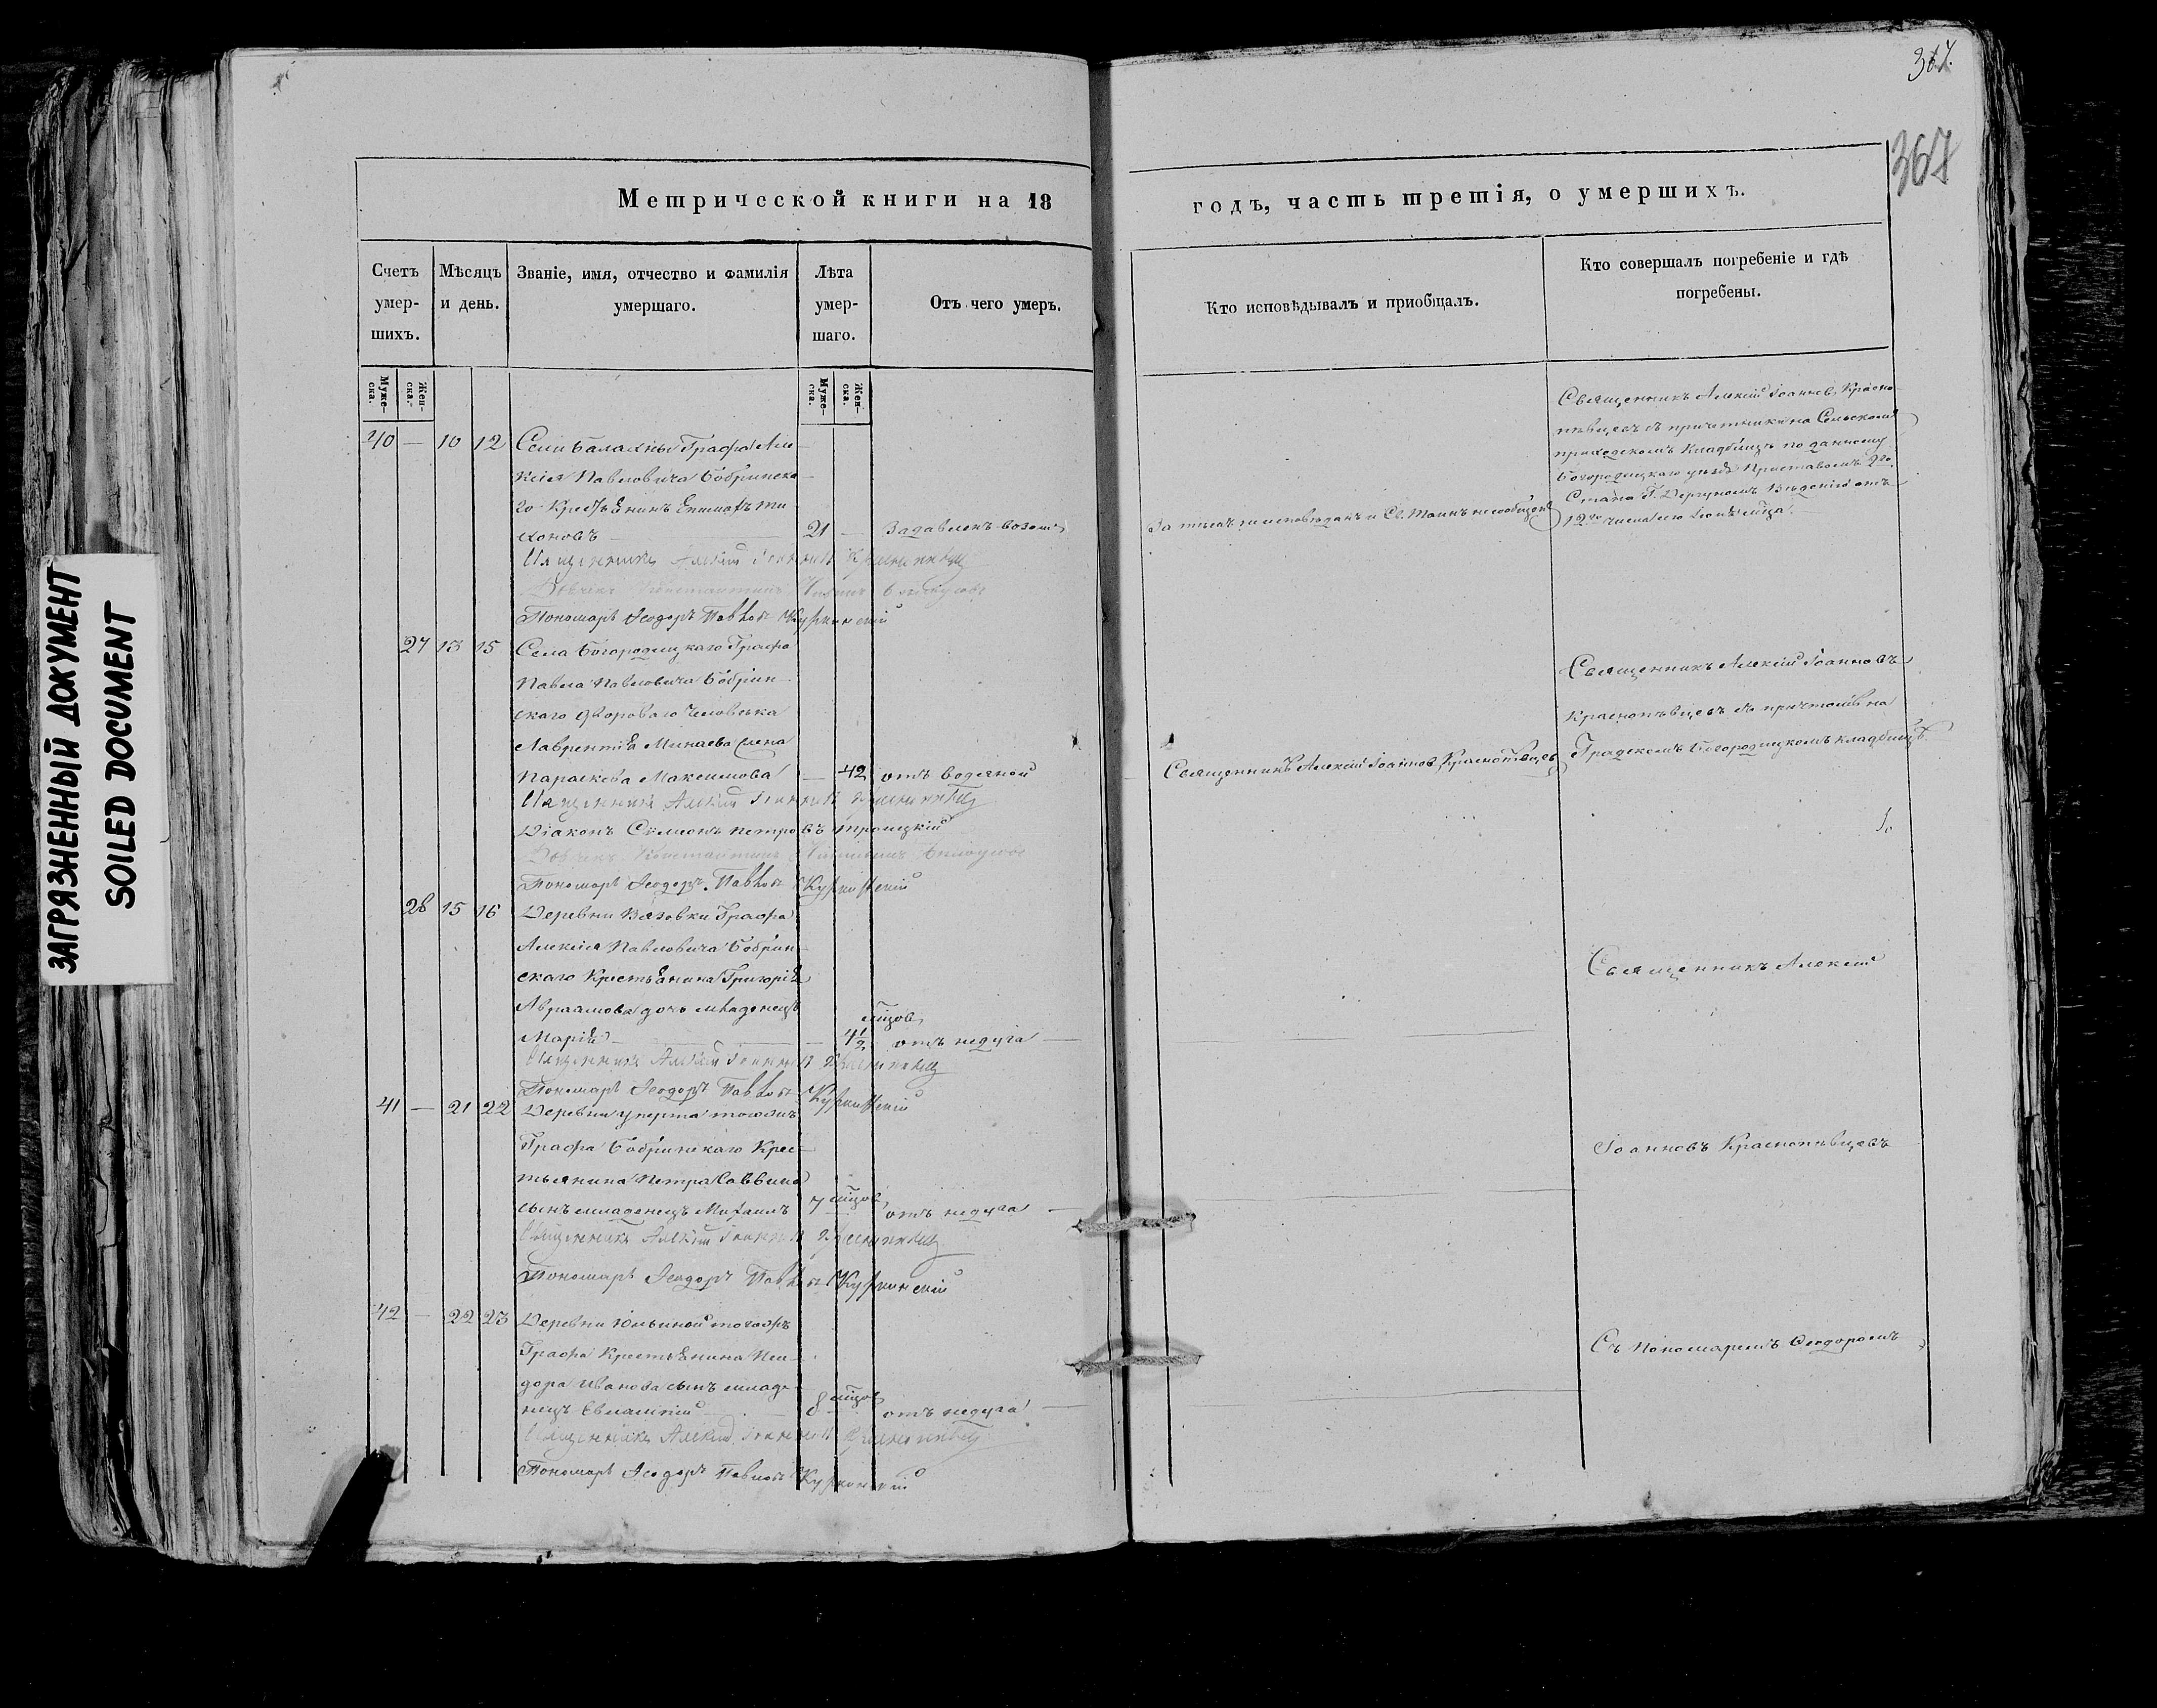 367.
367
ЗАГРЯЗНЕННЫЙ ДОКУМЕНТ
SOILED DOCUMENT
Метрической книги на 18
Счетъ умер-шихъ.
Мѣсяцъ и день.
Званіе, имя, отчество и фамилія умершаго.
Лѣта умер-шаго.
Отъ чего умеръ.
Муже-ска.
Жен-ска.
Муже-ска.
Жен-ска.
40 — 10 12 Села Балахны Графа Але-
ксія Павловича Бобринска-
го Крестьѣнинъ Ти-
хоновъ — 21 — Задавленъ возомъ
Священникъ Алексій Іоанновъ Краснопѣвцевъ
Дьячекъ Константинъ
Пономарь Ѳеодоръ Павловъ
27 13 15 Села Богородицкаго Графа
Павла Павловича Бобрин-
скаго двороваго человѣка
Лаврентіѣ Минаева жена
Параскева Максимова — 42 отъ водяной
Священникъ Алексій Іоанновъ Краснопѣвцевъ
Діаконъ Сѵмеонъ Петровъ Троицкій
Дьячекъ Константинъ
Пономарь Ѳеодоръ Павловъ
28 15 16 Деревни Вязовки Графа
Алексія Павловича Бобрин-
скаго Крестьѣнина Григоріѣ
Авраамова дочь младенецъ
Маріѣ — 4½ мѣцов. отъ недуга —
Священникъ Алексій Іоанновъ Краснопѣвцевъ
Пономарь Ѳеодоръ Павловъ
41 — 21 22 Деревни Уперта тогожъ
Графа Бобринскаго Крес-
тьянина Петра Саввина
сынъ младенецъ Михаилъ 7 мѣцов. отъ недуга —
Священникъ Алексій Іоанновъ Краснопѣвцевъ
Пономарь Ѳеодоръ Павловъ
42 — 22 23 Деревни Юньиной тогожъ
Графа Крестьѣнина Иси-
дора Иванова сынъ младе-
нецъ Евлампій 8 мѣцов. отъ недуга —
Священникъ Алексій Іоанновъ Краснопѣвцевъ
Пономарь Ѳеодоръ Павловъ
годъ, часть третія, о умершихъ.
Кто исповѣдывалъ и приобщалъ.
Кто совершалъ погребеніе и гдѣ погребены.
Священникъ Алексій Іоанновъ Красно-
пѣвцевъ съ причтомъ на Сельскомъ
приходскомъ Кладбищѣ по данному
Богородицкаго уѣзда Приставомъ 2го
Стана Г. вѣденію отъ
12го числа сего мѣца.
не исповѣданъ и Св. Таинъ не сообщенъ
Священникъ Алексій Іоанновъ
Краснопѣвцевъ съ причтомъ на
Градскомъ Богородицкомъ кладбищѣ
Священникъ Алексій Іоанновъ Краснопѣвцевъ
Священникъ Алексій
Іоанновъ Краснопѣвцевъ
Съ Пономаремъ Ѳеодоромъ